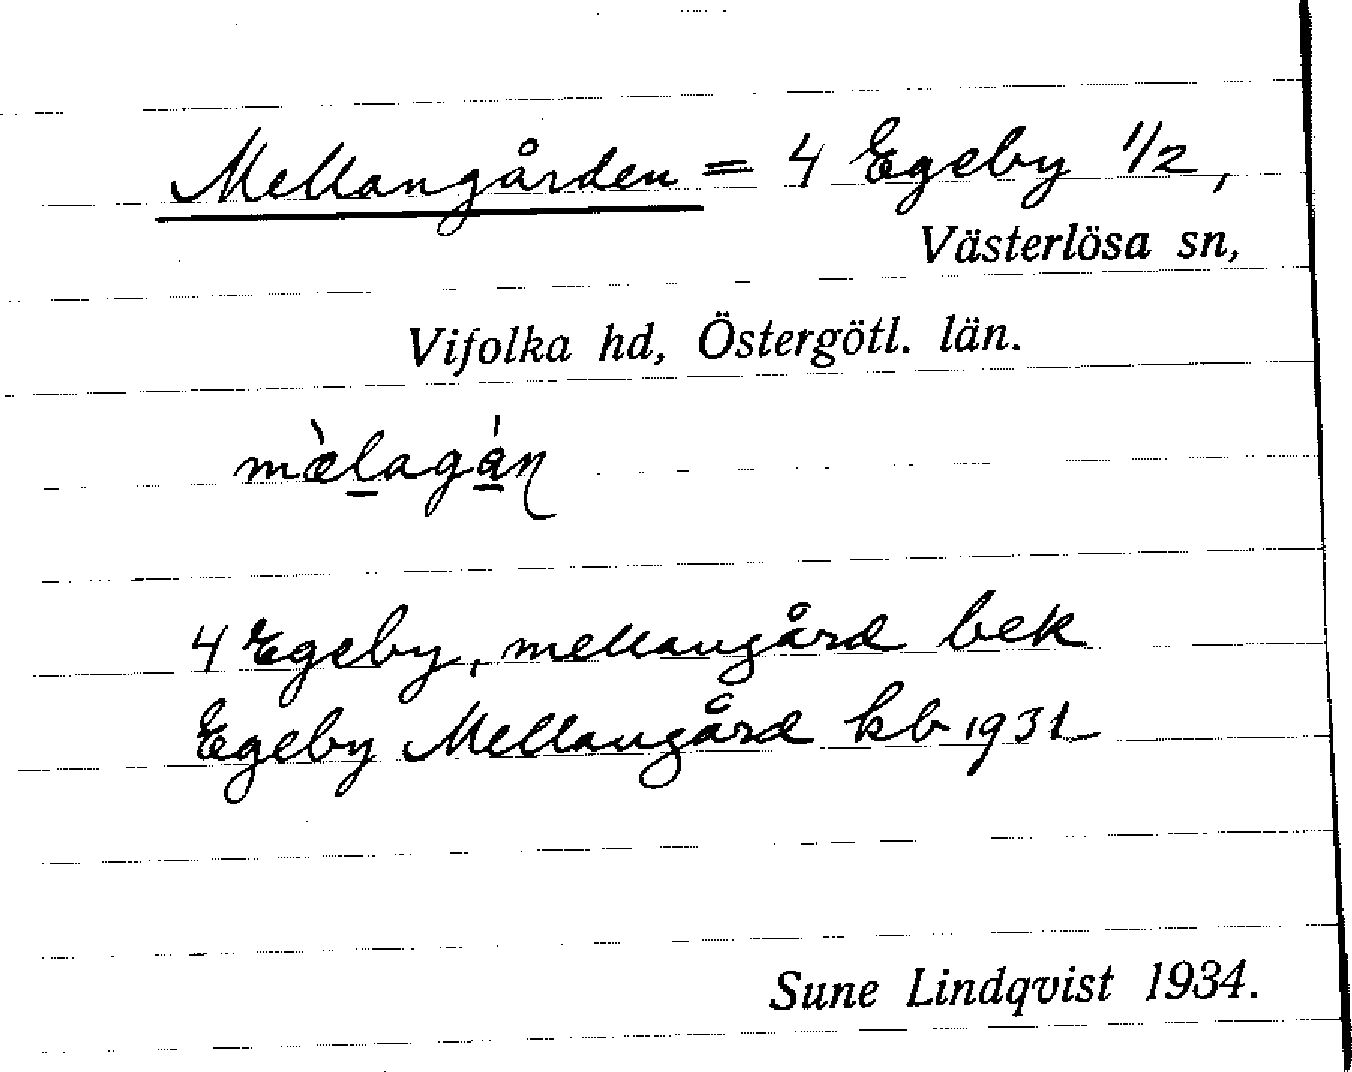 Mellangården = 4 Egeby 1/2,
Västerlösa sn,
Vifolka hd, Östergötl. län.
mæ̀l̠agá̠ɳ
4 Egeby, mellangård bek
Egeby Mellangård kb 1931
Sune Lindqvist 1934.